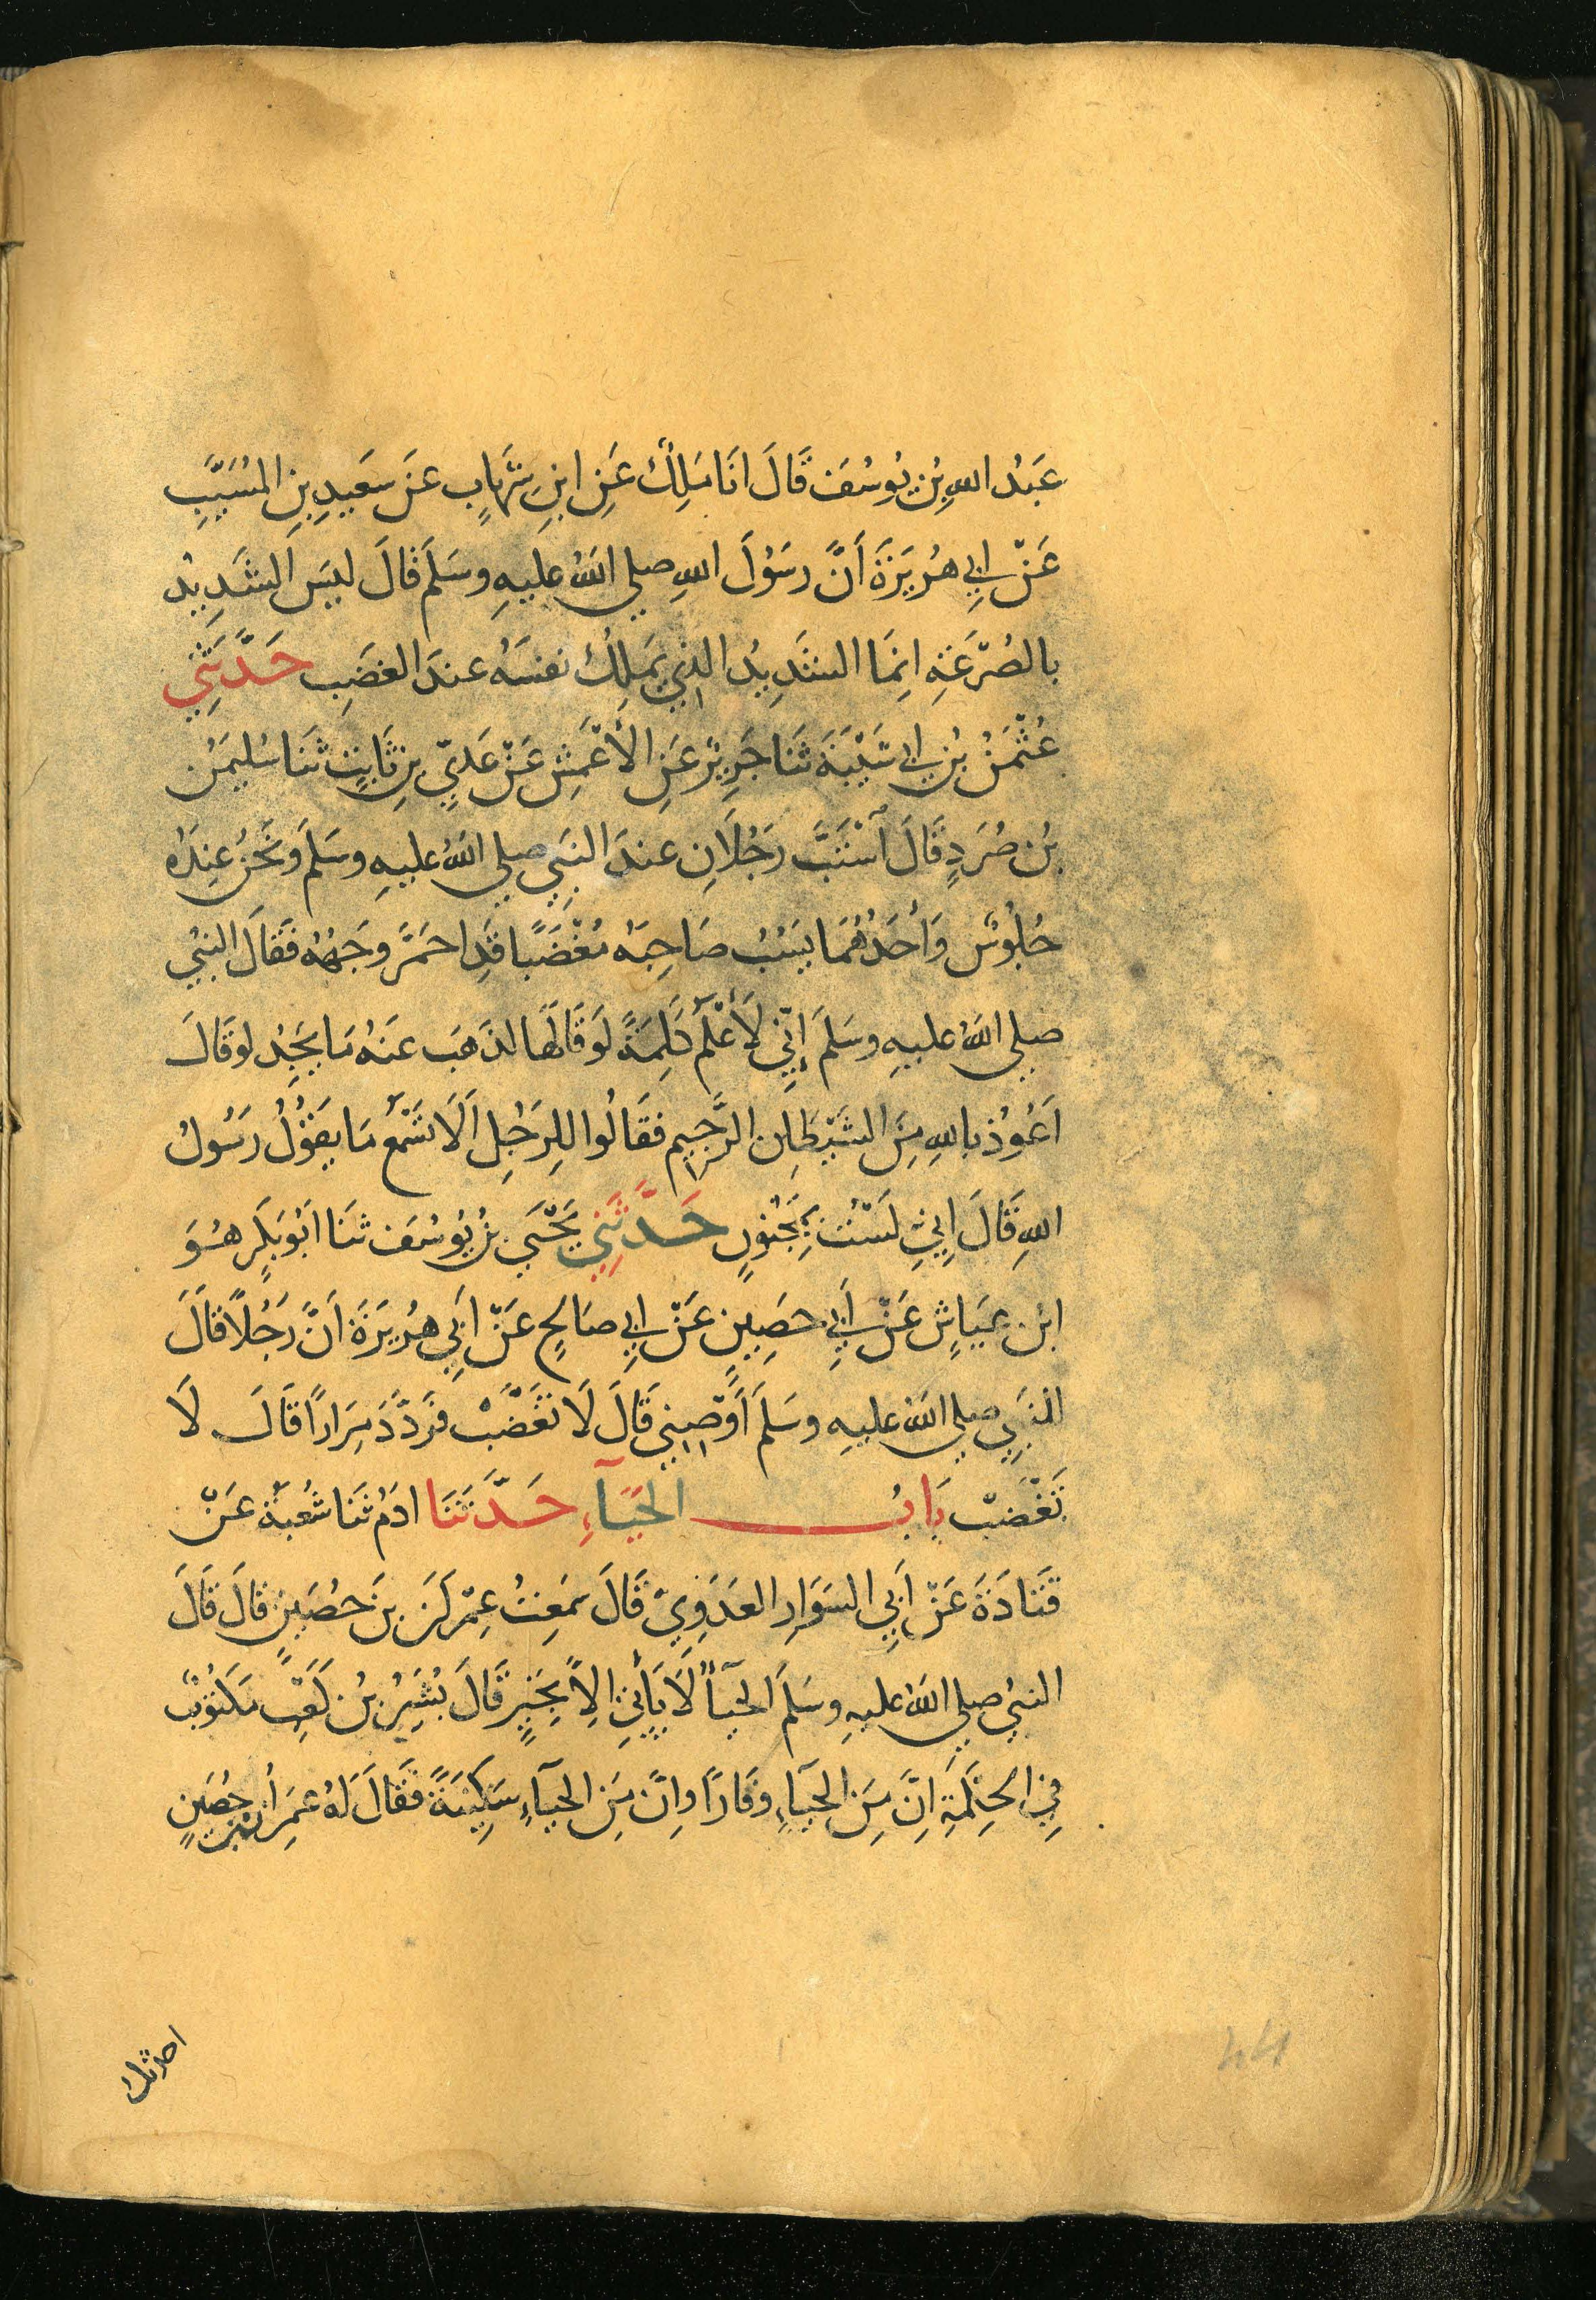 عَبْدُ اللهِ بْنُ يُوسُفَ قَالَ انَا مٰلِكٌ عَنِ ابْنِ شِهَابٍ عَن سَعِيدِ بنِ المُسَيَّبِ
عَنْ ابِي هُرَيْرَةَ أَنَّ رَسُوْلَ اللهِ صلي اللهُ عليهِ وسَلَمَ قَالَ ليسَ الشَدِيدُ
بالصُرَعَةِ اِنَمَا الشَدِيدُ الذِي يَملِكُ نفسَهُ عندَ الغضَبِ حَدَّثَنِي
عُثْمٰنُ بْنُ ابِي شَيْبَةَ ثَنَا جَرِيْرٌ عَنِ الأَعْمَشِ عَنْ عَدِيِّ بنِ ثَابِتٍ ثَنَا سُليمٰنُ
بْنُ صُرَدٍ قَالَ ٱسْتَبَّ رَجُلَانِ عندَ النبَيِ صلي اللهُ عليهِ وسَلَمَ وَنَحْنُ عِندَهُ
جُلُوْسٌ وَأَحَدُهُمَا يَسُبُ صَاحِبَهُ مُغْضَبًا قَدِ احمَرَّ وجَهُهُ فَقَالَ النبيُ
صلي اللهُ عليهِ وسَلَمَ إِنِّي لَأَعْلَمُ كَلِمَةً لَوقَالَهَا لذَهَبَ عَنهُ مَا يَجِدُ لوقَالَ
اَعُوْذُ باللهِ مِنَ الشَيْطٰنِ الرَّجِيمِ فقَالُوا لِلرَجُلِ اَلَا تَسْمَعُ مَا يقَوْلُ رَسُولُ
اللهِ قَالَ اِنِي لَسْتُ بِمَجْنُونٍ حَدَّثَنِي يَحْيَي بنُ يُوسُفَ ثنَا ابُوبَكرٍ هُوَ
ابْن عَيَاشٍ عَنْ أَبِي حصِينٍ عَنْ ابِي صَالحٍ عَنْ ابَيِ هُرَيرَةَ اَنَّ رَجُلاً قَالَ
للنبَيِ صلي اللهُ عليهِ وسَلَمَ أَوْصِنِي قَالَ لَا تغَضَبْ فرَدَّدَ مِرَارًا قَالَ لَا
تَغْضَبْ بَابُ الحَيَآءِ حَدَّثَنَا ادَمُ ثَنَا شُعْبَةُ عَنْ
قَتَادَةَ عَنْ اَبِي السَوَارِ العَدَوِيّ قَالَ سَمِعتُ عِمْرٰنَ بنَ حصُيَنٍ قَالَ قَالَ
النبيُ صلي اللهُ عليهِ وسَلَمَ الحَيَآءُ لَا يَأْتِي اِلاَّ بِخَيرٍ قَالَ بُشَيرُ بْنُ كَعْبٍ مَكتوُبٌ
فِي الحِكْمَةِ اِنَّ مِنَ الحَيَآءِ وقَارًا واِنَّ مِنَ الحيَآءِ سَكِينَةً فَقَالَ لَهُ عمِرَانُ بْنُ حُصَينٍ
احدثك